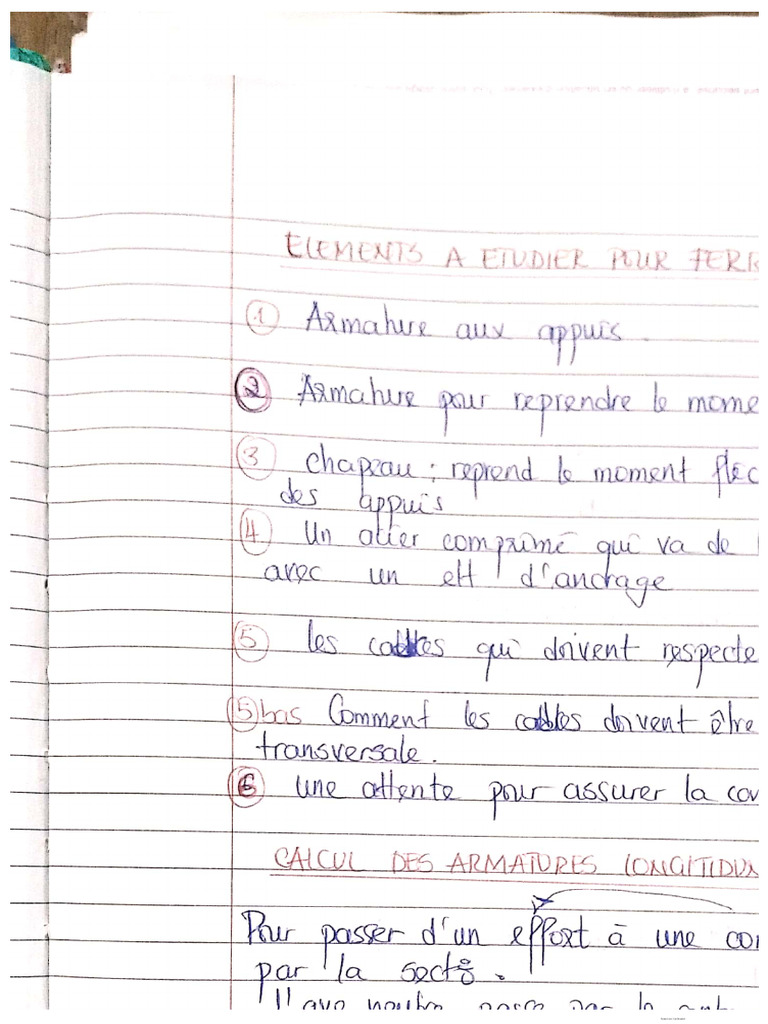 ELEMENTS A ETUDIER POUR FERR
① Armature aux appuis.
② Armature pour reprendre le mome
③ chapeau : reprend le moment fléc
des appuis
④ Un acier comprimé qui va de
avec un eff d'ancrage
⑤ les cadres qui doivent respecte
⑤bas Comment les cadres doivent être
transversale.
⑥ une attente pour assurer la cou
CALCUL DES ARMATURES LONGITIDUN
Pour passer d'un effort à une con
par la sect°.